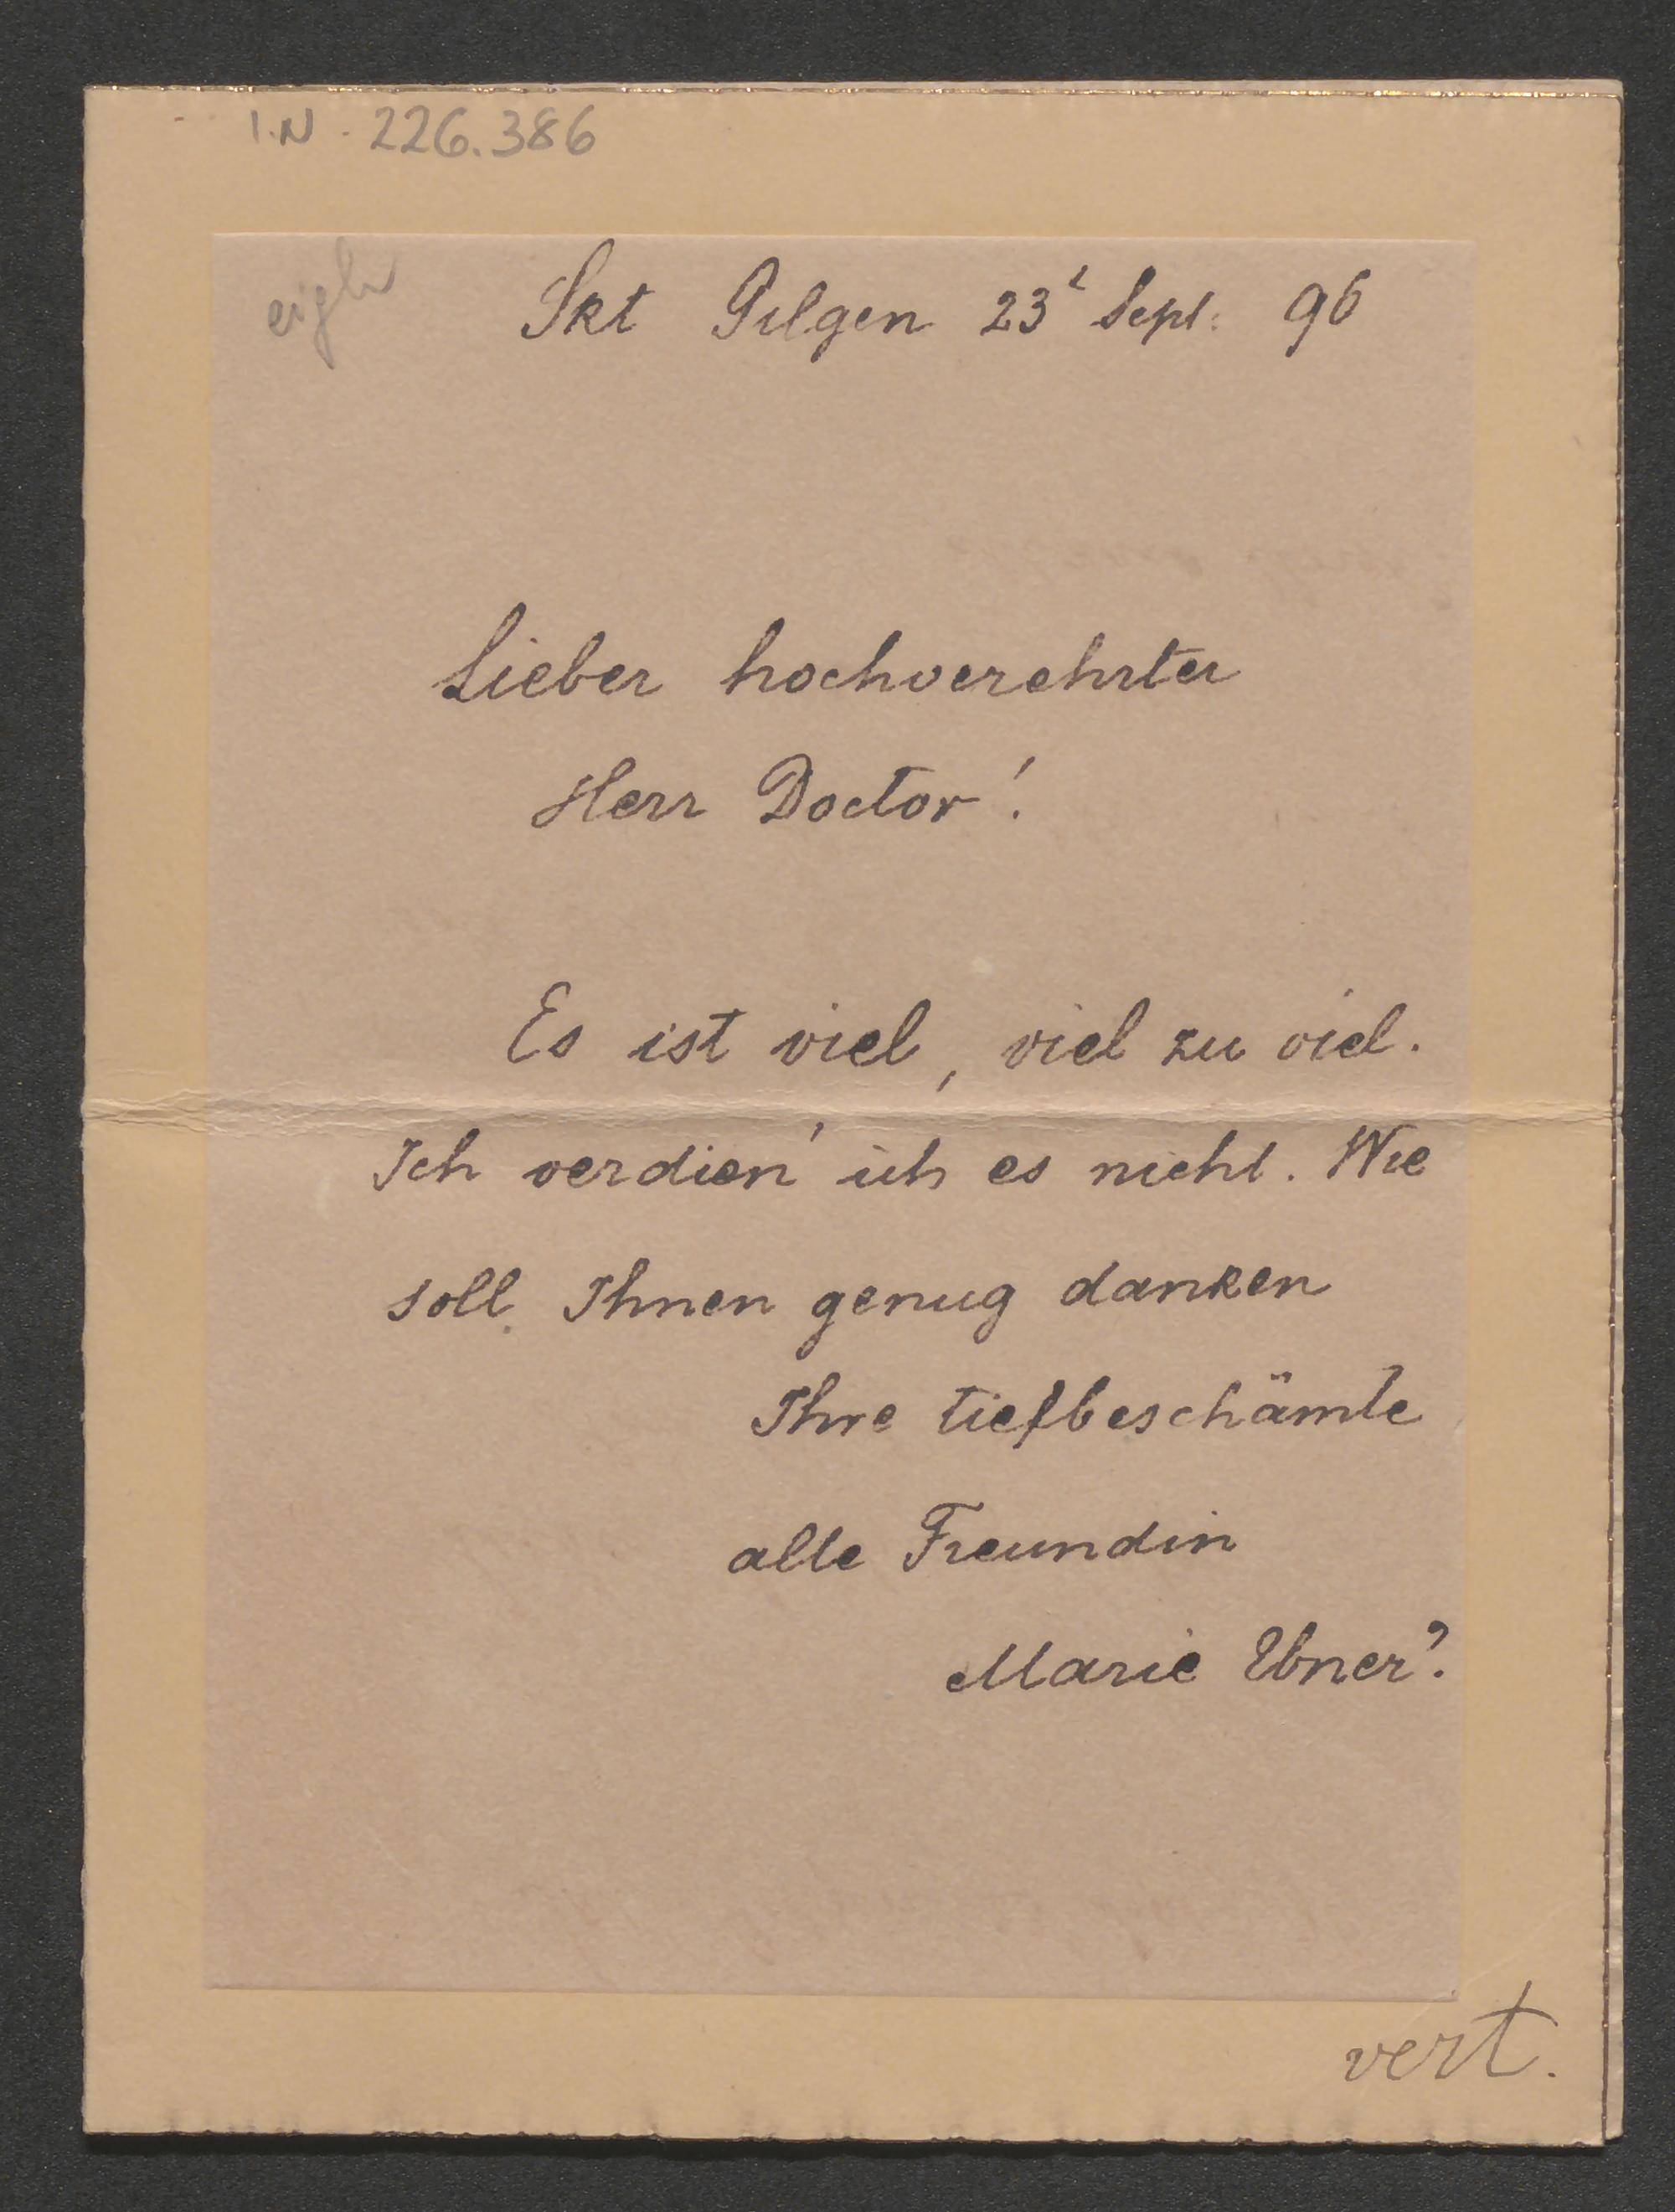 I.N. 226.386
eigh
Skt Gilgen 23t Sept. 96
Lieber hochverehrter
Herr Doctor!
Es ist viel, viel zu viel.
Ich verdien' ich es nicht. Wie
soll Ihnen genug danken
Ihre tiefbeschämte
alte Freundin
Marie Ebner?
vert.